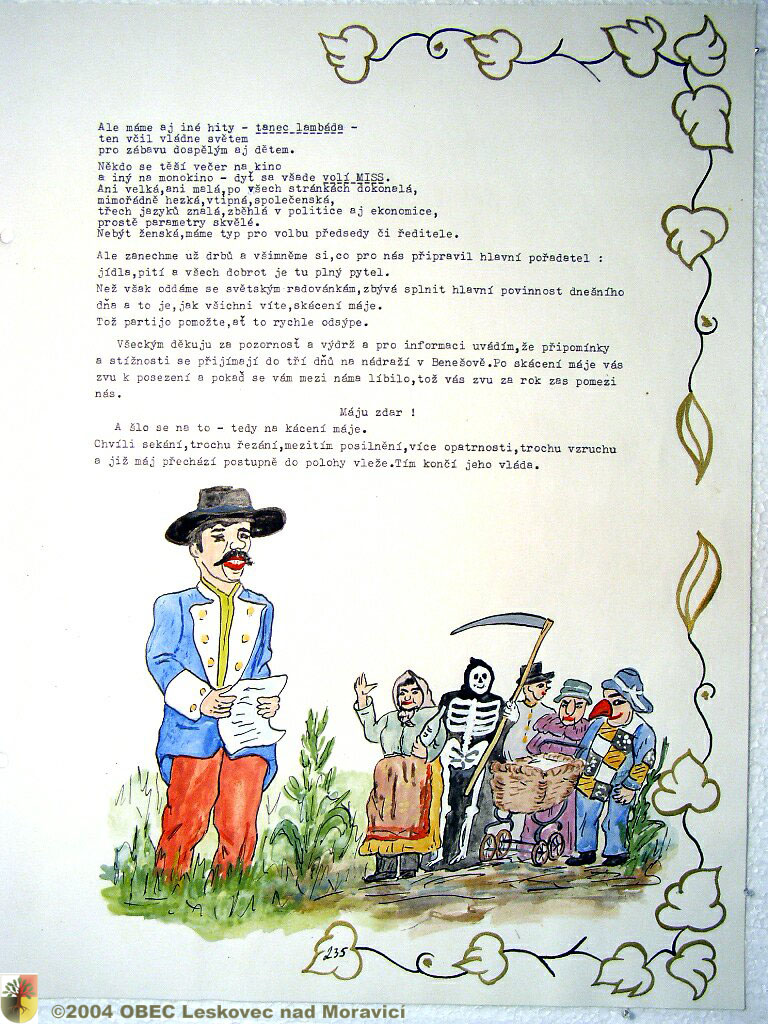 Ale máme aj iné hity - tanec lambáda -
ten včil vládne světem
pro zábavu dospělým aj dětem.
Někdo se těší večer na kino
a iný na monokino - dyť sa všade volí MISS.
Ani velká,ani malá,po všech stránkách dokonalá,
mimořádně hezká,vtipná,společenská,
třech jazyků znalá,zběhlá v politice aj ekonomice,
prostě parametry skvělé.
Nebýt ženská,máme typ pro volbu předsedy či ředitele.
Ale zanechme už drbů a všimněme si,co pro nás připravil hlavní pořadatel :
jídla,pití a všech dobrot je tu plný pytel.
Než však oddáme se světským radovánkám,zbývá splnit hlavní povinnost dnešního
dňa a to je,jak všichni víte,skácení máje.
Tož partijo pomožte,ať to rychle odsýpe.
Všeckým děkuju za pozornosť a výdrž a pro informaci uvádím,že připomínky
a stížnosti se přijímají do tří dňů na nádraží v Benešově.Po skácení máje vás
zvu k posezení a pokaď se vám mezi náma líbilo,tož vás zvu za rok zas pomezi
nás.
Máju zdar !
A šlo se na to - tedy na kácení máje.
Chvíli sekání,trochu řezání,mezitím posilnění,více opatrnosti,trochu vzruchu
a již máj přechází postupně do polohy vleže.Tím končí jeho vláda.
235
©2004 OBEC Leskovec nad Moravicí